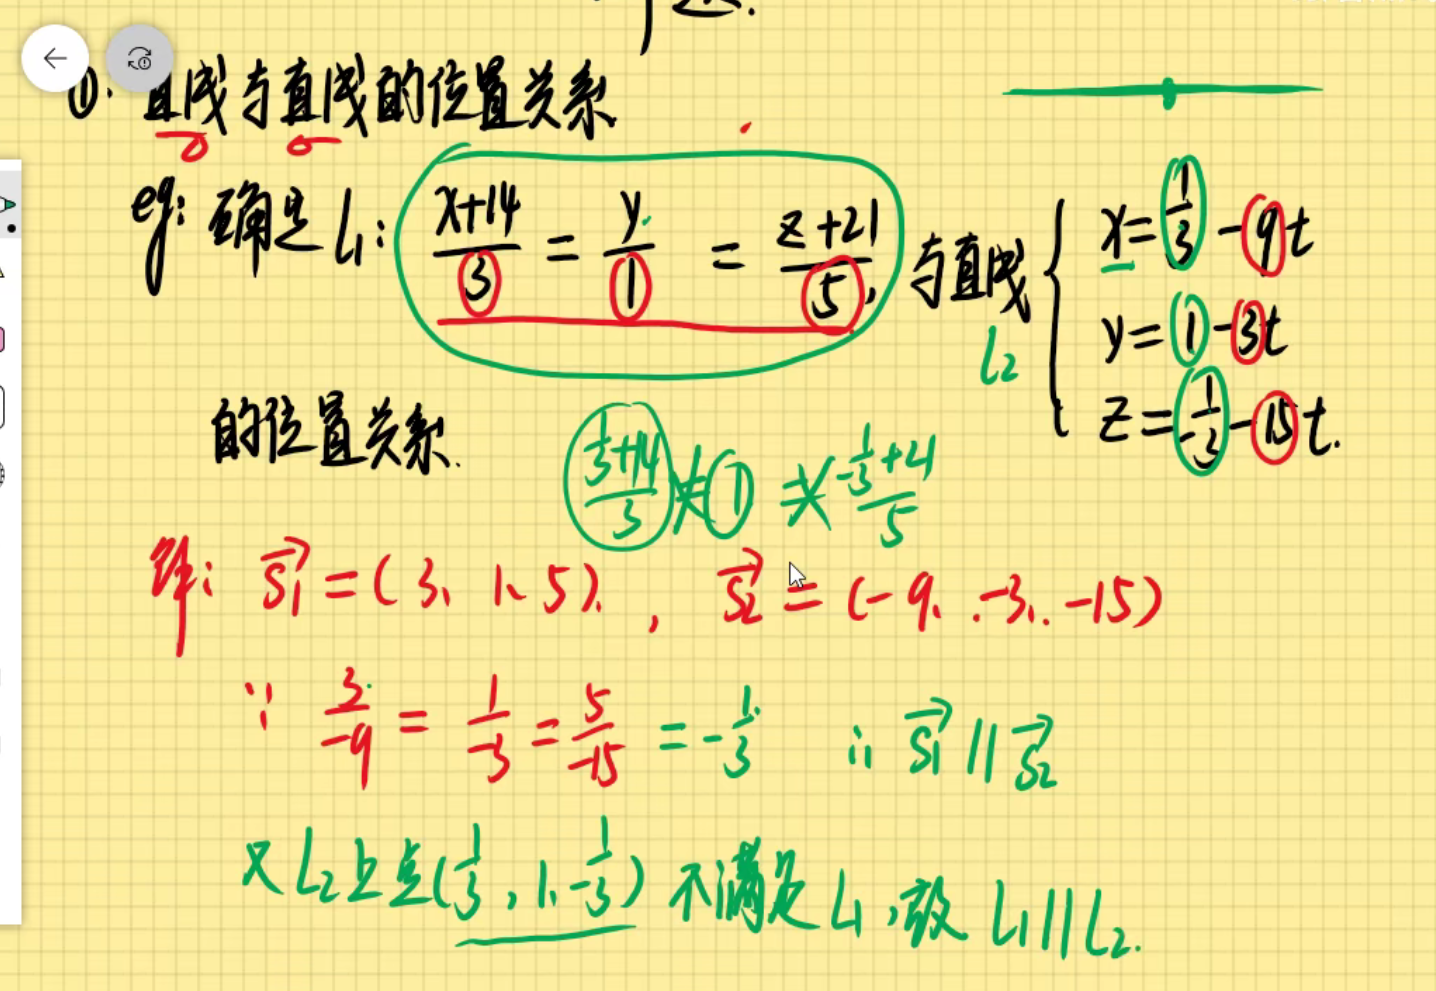 ①. 直线与直线的位置关系
eg: 确定 L₁: (x+14)/3 = y/1 = (z+21)/5, 与直线 L₂ { x = 1/3 - 9t
y = 1 - 3t
z = -1/3 - 15t.
的位置关系.
(1/3+14)/3 ≠ 1 ≠ (-1/3+21)/5
解: s₁→ = (3, 1, 5), s₂→ = (-9, -3, -15)
∵ 3/-9 = 1/-3 = 5/-15 = -1/3 ∴ s₁→ // s₂→
又 L₂上点(1/3, 1, -1/3) 不满足 L₁, 故 L₁ // L₂.